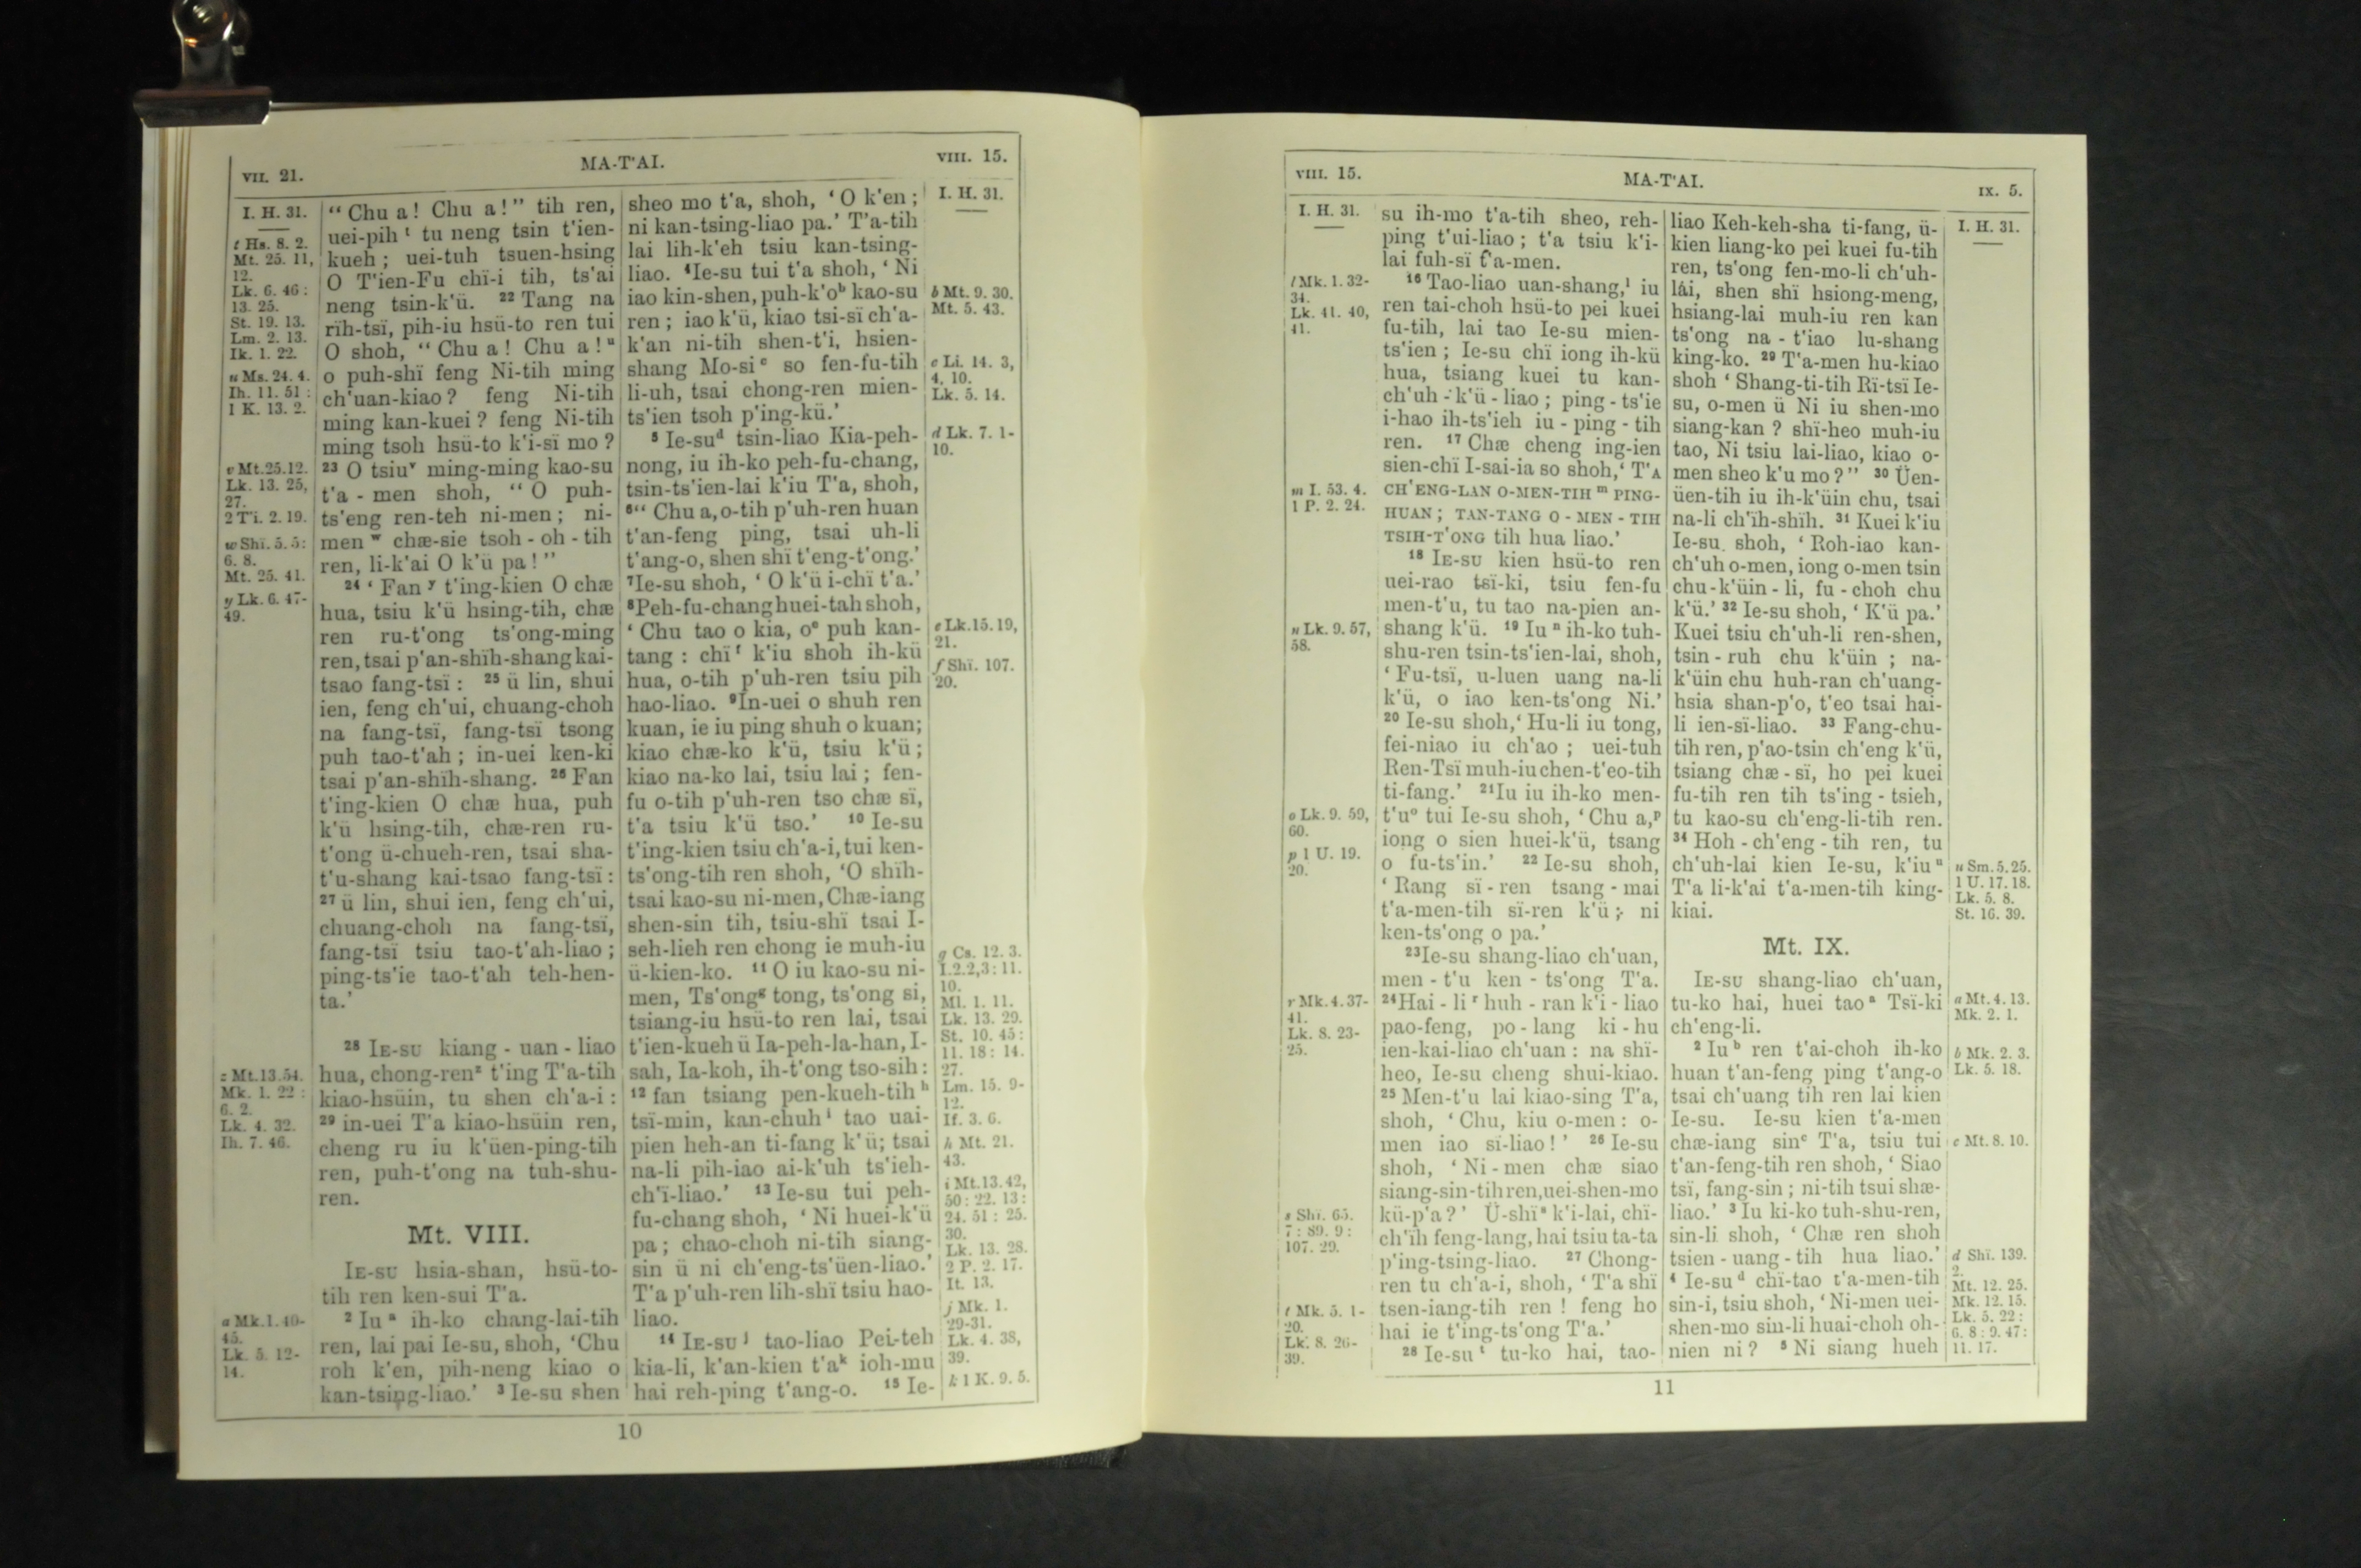 VII. 21.
MA-T'AI.
VIII. 15.
I. H. 31.
t Hs. 8. 2.
Mt. 25. 11,
12.
Lk. 6. 46 :
13. 25.
St. 19. 13.
Lm. 2. 13.
Ik. 1. 22.
u Ms. 24. 4.
Ih. 11. 51 :
1 K. 13. 2.
v Mt.25.12.
Lk. 13. 25,
27.
2 T'i. 2. 19.
w Shï. 5. 5:
6. 8.
Mt. 25. 41.
y Lk. 6. 47-
49.
z Mt.13.54.
Mk. 1. 22 :
6. 2.
Lk. 4. 32.
Ih. 7. 46.
a Mk.1.40-
45.
Lk. 5. 12-
14.
“ Chu a! Chu a!” tih ren,
uei-pih t tu neng tsin t'ien-
kueh ; uei-tuh tsuen-hsing
O T'ien-Fu chï-i tih, ts'ai
neng tsin-k'ü. 22 Tang na
rïh-tsï, pih-iu hsü-to ren tui
O shoh, “ Chu a ! Chu a ! u
o puh-shï feng Ni-tih ming
ch'uan-kiao ? feng Ni-tih
ming kan-kuei ? feng Ni-tih
ming tsoh hsü-to k'i-sï mo ?
23 O tsiu v ming-ming kao-su
t'a - men shoh, “ O puh-
ts'eng ren-teh ni-men ; ni-
men w chæ-sie tsoh - oh - tih
ren, li-k'ai O k'ü pa ! ”
24 ‘ Fan y t'ing-kien O chæ
hua, tsiu k'ü hsing-tih, chæ
ren ru-t'ong ts'ong-ming
ren, tsai p'an-shïh-shang kai-
tsao fang-tsï : 25 ü lin, shui
ien, feng ch'ui, chuang-choh
na fang-tsï, fang-tsï tsong
puh tao-t'ah ; in-uei ken-ki
tsai p'an-shïh-shang. 26 Fan
t'ing-kien O chæ hua, puh
k'ü hsing-tih, chæ-ren ru-
t'ong ü-chueh-ren, tsai sha-
t'u-shang kai-tsao fang-tsï :
27 ü lin, shui ien, feng ch'ui,
chuang-choh na fang-tsï,
fang-tsï tsiu tao-t'ah-liao ;
ping-ts'ie tao-t'ah teh-hen-
ta.’
28 IE-SU kiang - uan - liao
hua, chong-ren z t'ing T'a-tih
kiao-hsüin, tu shen ch'a-i :
29 in-uei T'a kiao-hsüin ren,
cheng ru iu k'üen-ping-tih
ren, puh-t'ong na tuh-shu-
ren.
Mt. VIII.
IE-SU hsia-shan, hsü-to-
tih ren ken-sui T'a.
2 Iu a ih-ko chang-lai-tih
ren, lai pai Ie-su, shoh, ‘Chu
roh k'en, pih-neng kiao o
kan-tsing-liao.’ 3 Ie-su shen
sheo mo t'a, shoh, ‘ O k'en ;
ni kan-tsing-liao pa.’ T'a-tih
lai lih-k'eh tsiu kan-tsing-
liao. 4 Ie-su tui t'a shoh, ‘ Ni
iao kin-shen, puh-k'o b kao-su
ren ; iao k'ü, kiao tsi-sï ch'a-
k'an ni-tih shen-t'i, hsien-
shang Mo-si c so fen-fu-tih
li-uh, tsai chong-ren mien-
ts'ien tsoh p'ing-kü.’
5 Ie-su d tsin-liao Kia-peh-
nong, iu ih-ko peh-fu-chang,
tsin-ts'ien-lai k'iu T'a, shoh,
6 “ Chu a, o-tih p'uh-ren huan
t'an-feng ping, tsai uh-li
t'ang-o, shen shï t'eng-t'ong.’
7 Ie-su shoh, ‘ O k'ü i-chï t'a.’
8 Peh-fu-chang huei-tah shoh,
‘ Chu tao o kia, o e puh kan-
tang : chï f k'iu shoh ih-kü
hua, o-tih p'uh-ren tsiu pih
hao-liao. 9 In-uei o shuh ren
kuan, ie iu ping shuh o kuan;
kiao chæ-ko k'ü, tsiu k'ü ;
kiao na-ko lai, tsiu lai ; fen-
fu o-tih p'uh-ren tso chæ sï,
t'a tsiu k'ü tso.’ 10 Ie-su
t'ing-kien tsiu ch'a-i, tui ken-
ts'ong-tih ren shoh, ‘O shïh-
tsai kao-su ni-men, Chæ-iang
shen-sin tih, tsiu-shï tsai I-
seh-lieh ren chong ie muh-iu
ü-kien-ko. 11 O iu kao-su ni-
men, Ts'ong g tong, ts'ong si,
tsiang-iu hsü-to ren lai, tsai
t'ien-kueh ü Ia-peh-la-han, I-
sah, Ia-koh, ih-t'ong tso-sih :
12 fan tsiang pen-kueh-tih h
tsï-min, kan-chuh i tao uai-
pien heh-an ti-fang k'ü; tsai
na-li pih-iao ai-k'uh ts'ieh-
ch'ï-liao.’ 13 Ie-su tui peh-
fu-chang shoh, ‘ Ni huei-k'ü
pa ; chao-choh ni-tih siang-
sin ü ni ch'eng-ts'üen-liao.’
T'a p'uh-ren lih-shï tsiu hao-
liao.
14 IE-SU j tao-liao Pei-teh
kia-li, k'an-kien t'a k ioh-mu
hai reh-ping t'ang-o. 15 Ie-
I. H. 31.
b Mt. 9. 30.
Mt. 5. 43.
c Li. 14. 3,
4, 10.
Lk. 5. 14.
d Lk. 7. 1-
10.
e Lk.15.19,
21.
f Shï. 107.
20.
g Cs. 12. 3.
I.2.2,3: 11.
10.
Ml. 1. 11.
Lk. 13. 29.
St. 10. 45 :
11. 18 : 14.
27.
Lm. 15. 9-
12.
If. 3. 6.
h Mt. 21.
43.
i Mt.13.42,
50 : 22. 13 :
24. 51 : 25.
30.
Lk. 13. 28.
2 P. 2. 17.
It. 13.
j Mk. 1.
29-31.
Lk. 4. 38,
39.
k 1 K. 9. 5.
10
VIII. 15.
MA-T'AI.
IX. 5.
I. H. 31.
l Mk. 1. 32-
34.
Lk. 41. 40,
41.
m I. 53. 4.
1 P. 2. 24.
n Lk. 9. 57,
58.
o Lk. 9. 59,
60.
p 1 U. 19.
20.
r Mk. 4. 37-
41.
Lk. 8. 23-
25.
s Shï. 65.
7 : 89. 9 :
107. 29.
t Mk. 5. 1-
20.
Lk. 8. 26-
39.
su ih-mo t'a-tih sheo, reh-
ping t'ui-liao ; t'a tsiu k'i-
lai fuh-sï t'a-men.
16 Tao-liao uan-shang, l iu
ren tai-choh hsü-to pei kuei
fu-tih, lai tao Ie-su mien-
ts'ien ; Ie-su chï iong ih-kü
hua, tsiang kuei tu kan-
ch'uh - k'ü - liao ; ping - ts'ie
i-hao ih-ts'ieh iu - ping - tih
ren. 17 Chæ cheng ing-ien
sien-chï I-sai-ia so shoh, ‘ T'A
CH'ENG-LAN O-MEN-TIH m PING-
HUAN ; TAN-TANG O - MEN - TIH
TSIH-T'ONG tih hua liao.’
18 IE-SU kien hsü-to ren
uei-rao tsï-ki, tsiu fen-fu
men-t'u, tu tao na-pien an-
shang k'ü. 19 Iu n ih-ko tuh-
shu-ren tsin-ts'ien-lai, shoh,
‘ Fu-tsï, u-luen uang na-li
k'ü, o iao ken-ts'ong Ni.’
20 Ie-su shoh, ‘ Hu-li iu tong,
fei-niao iu ch'ao ; uei-tuh
Ren-Tsï muh-iu chen-t'eo-tih
ti-fang.’ 21 Iu iu ih-ko men-
t'u o tui Ie-su shoh, ‘ Chu a, p
iong o sien huei-k'ü, tsang
o fu-ts'in.’ 22 Ie-su shoh,
‘ Rang sï - ren tsang - mai
t'a-men-tih sï-ren k'ü ; ni
ken-ts'ong o pa.’
23 Ie-su shang-liao ch'uan,
men - t'u ken - ts'ong T'a.
24 Hai - li r huh - ran k'i - liao
pao-feng, po - lang ki - hu
ien-kai-liao ch'uan : na shï-
heo, Ie-su cheng shui-kiao.
25 Men-t'u lai kiao-sing T'a,
shoh, ‘ Chu, kiu o-men : o-
men iao sï-liao ! ’ 26 Ie-su
shoh, ‘ Ni - men chæ siao
siang-sin-tih ren, uei-shen-mo
kü-p'a ? ’ Ü-shï s k'i-lai, chï-
ch'ïh feng-lang, hai tsiu ta-ta
p'ing-tsing-liao. 27 Chong-
ren tu ch'a-i, shoh, ‘ T'a shï
tsen-iang-tih ren ! feng ho
hai ie t'ing-ts'ong T'a.’
28 Ie-su t tu-ko hai, tao-
liao Keh-keh-sha ti-fang, ü-
kien liang-ko pei kuei fu-tih
ren, ts'ong fen-mo-li ch'uh-
lái, shen shï hsiong-meng,
hsiang-lai muh-iu ren kan
ts'ong na - t'iao lu-shang
king-ko. 29 T'a-men hu-kiao
shoh ‘ Shang-ti-tih Rï-tsï Ie-
su, o-men ü Ni iu shen-mo
siang-kan ? shï-heo muh-iu
tao, Ni tsiu lai-liao, kiao o-
men sheo k'u mo ? ” 30 Üen-
üen-tih iu ih-k'üin chu, tsai
na-li ch'ïh-shïh. 31 Kuei k'iu
Ie-su shoh, ‘ Roh-iao kan-
ch'uh o-men, iong o-men tsin
chu - k'üin - li, fu - choh chu
k'ü.’ 32 Ie-su shoh, ‘ K'ü pa.’
Kuei tsiu ch'uh-li ren-shen,
tsin - ruh chu k'üin ; na-
k'üin chu huh-ran ch'uang-
hsia shan-p'o, t'eo tsai hai-
li ien-sï-liao. 33 Fang-chu-
tih ren, p'ao-tsin ch'eng k'ü,
tsiang chæ - sï, ho pei kuei
fu-tih ren tih ts'ing - tsieh,
tu kao-su ch'eng-li-tih ren.
34 Hoh - ch'eng - tih ren, tu
ch'uh-lai kien Ie-su, k'iu u
T'a li-k'ai t'a-men-tih king-
kiai.
Mt. IX.
IE-SU shang-liao ch'uan,
tu-ko hai, huei tao a Tsï-ki
ch'eng-li.
2 Iu b ren t'ai-choh ih-ko
huan t'an-feng ping t'ang-o
tsai ch'uang tih ren lai kien
Ie-su. Ie-su kien t'a-men
chæ-iang sin c T'a, tsiu tui
t'an-feng-tih ren shoh, ‘ Siao
tsï, fang-sin ; ni-tih tsui shæ-
liao.’ 3 Iu ki-ko tuh-shu-ren,
sin-li shoh, ‘ Chæ ren shoh
tsien - uang - tih hua liao.’
4 Ie-su d chï-tao t'a-men-tih
sin-i, tsiu shoh, ‘ Ni-men uei-
shen-mo sin-li huai-choh oh-
nien ni ? 5 Ni siang hueh
I. H. 31.
u Sm. 5. 25.
1 U. 17. 18.
Lk. 5. 8.
St. 16. 39.
a Mt. 4. 13.
Mk. 2. 1.
b Mk. 2. 3.
Lk. 5. 18.
c Mt. 8. 10.
d Shï. 139.
2.
Mt. 12. 25.
Mk. 12. 15.
Lk. 5. 22 :
6. 8 : 9. 47 :
11. 17.
11